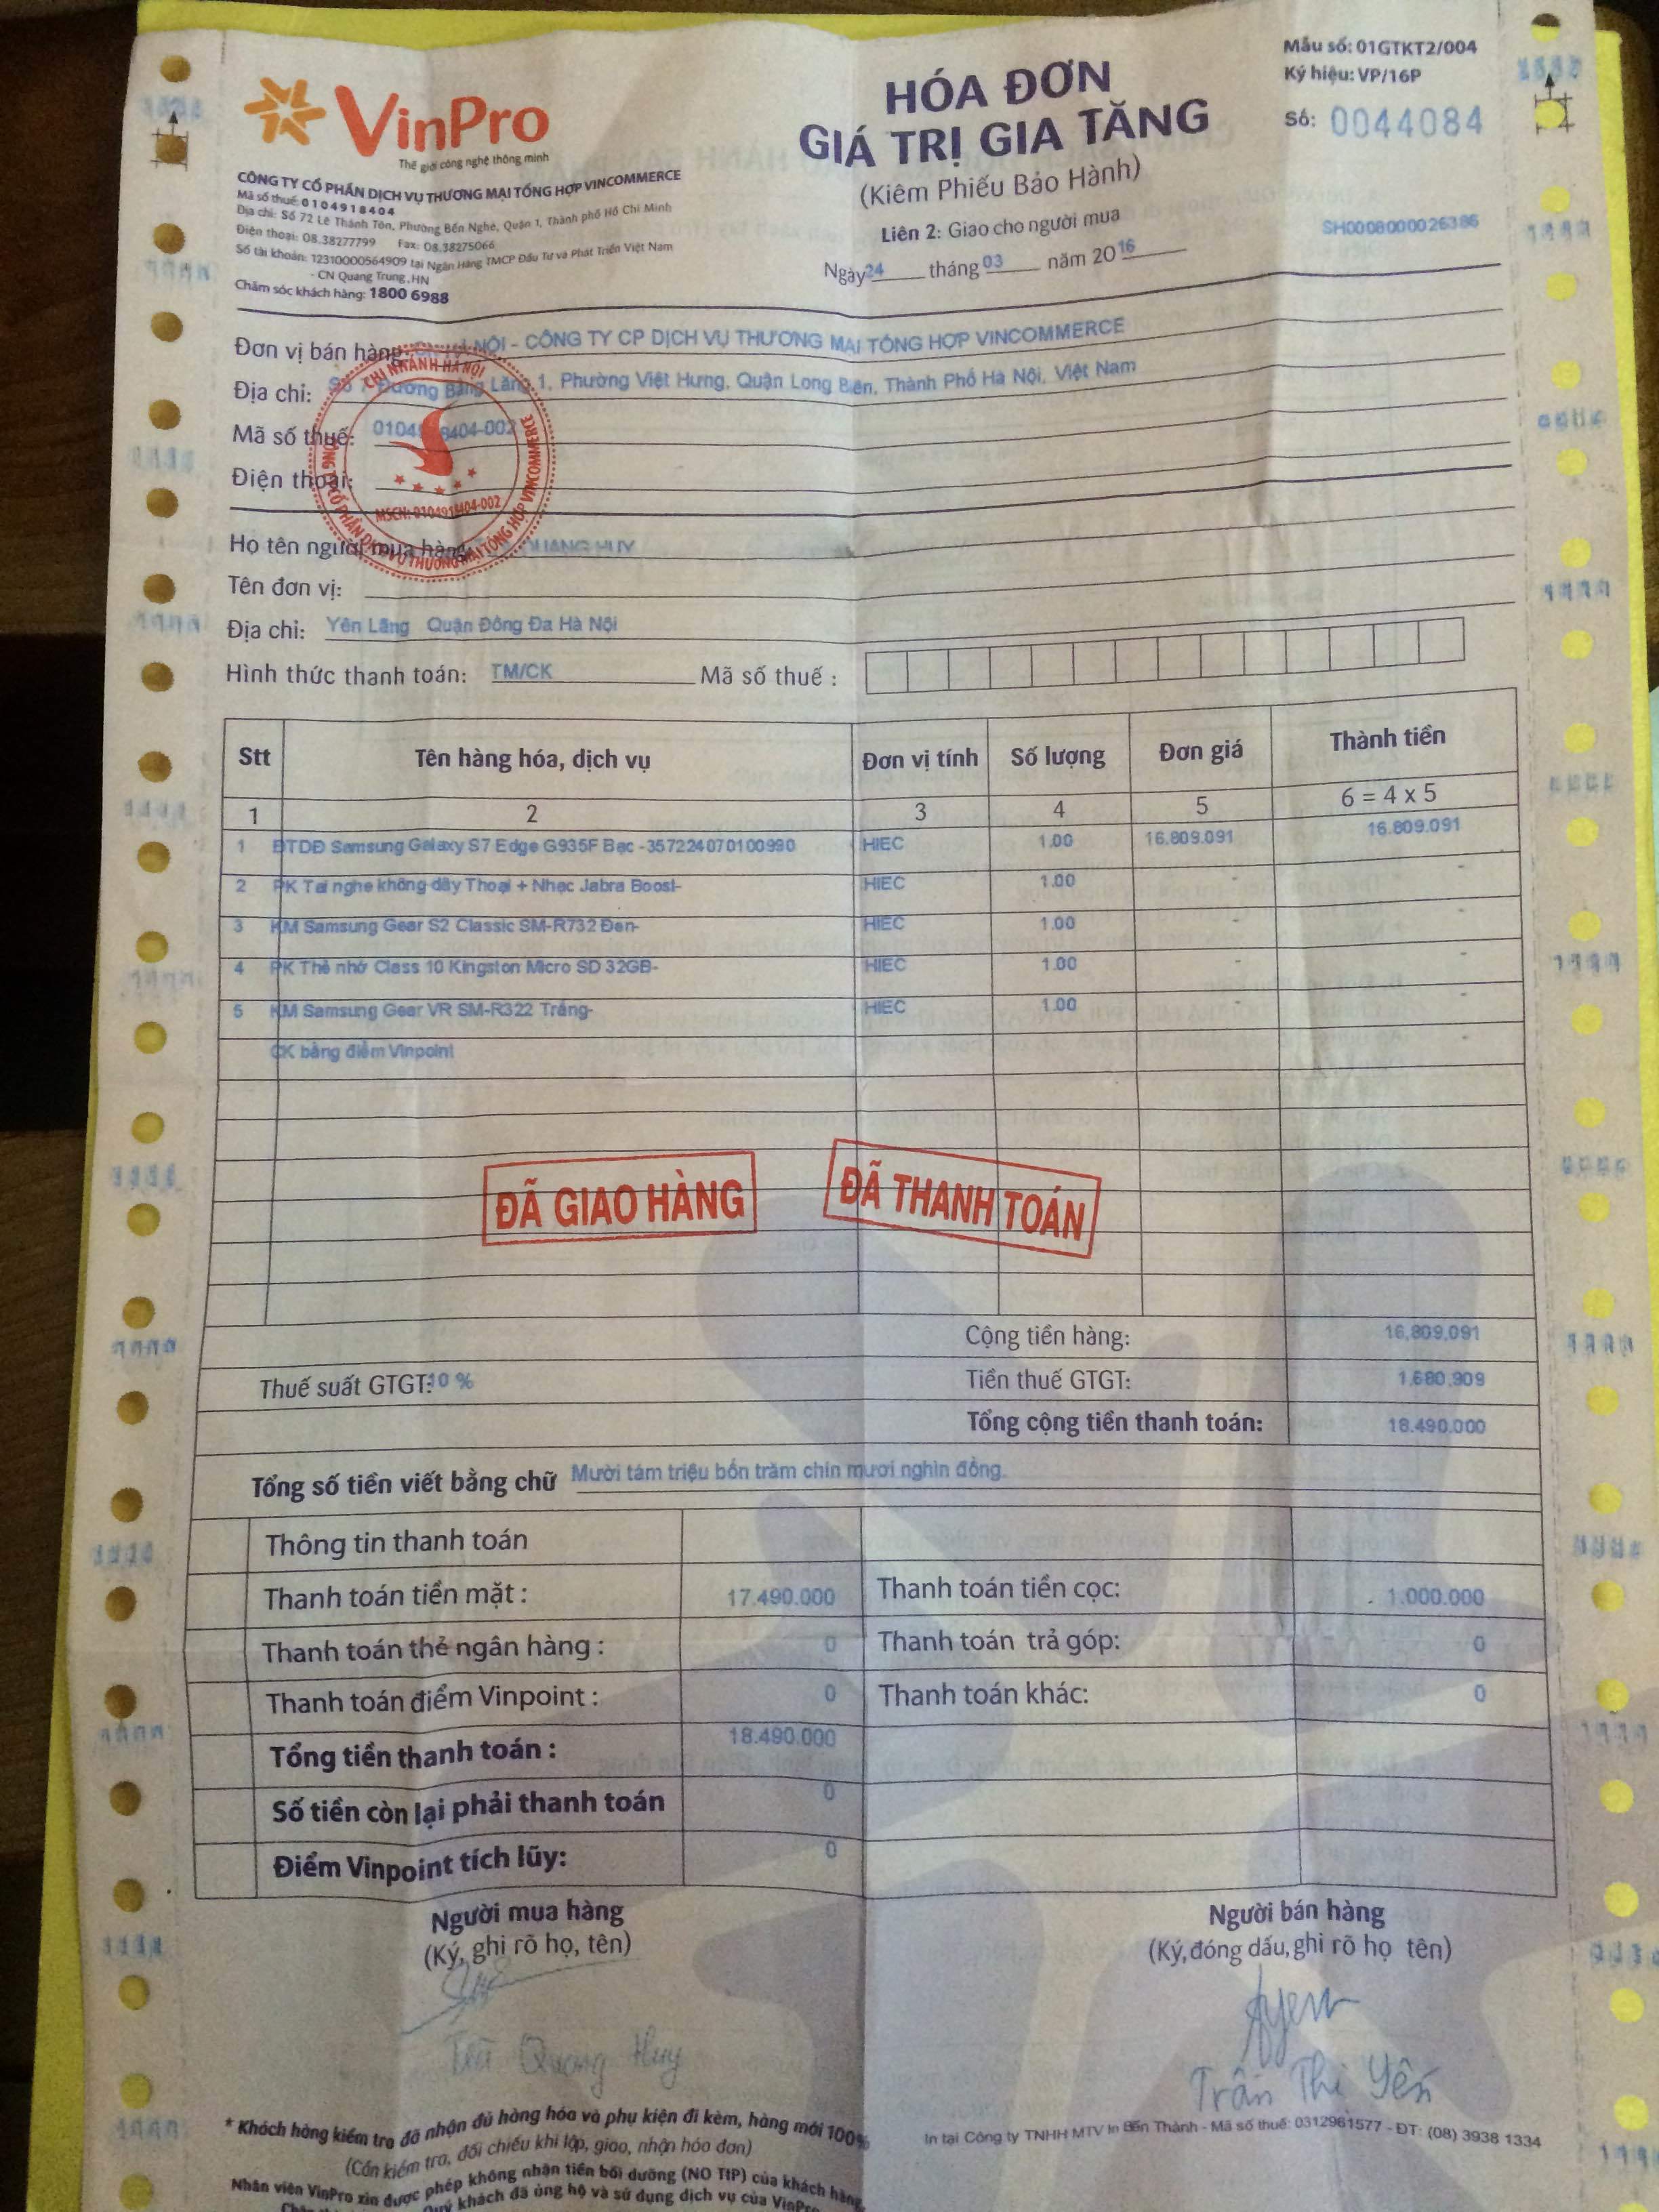 VinPro
Thế giới công nghệ thông minh
CÔNG TY CỔ PHẦN DỊCH VỤ THƯƠNG MẠI TỔNG HỢP VINCOMMERCE
Mã số thuế: 0104918404
Địa chỉ: Số 72 Lê Thánh Tôn, Phường Bến Nghé, Quận 1, Thành phố Hồ Chí Minh
Điện thoại: 08.38277799 Fax: 08.38275066
Số tài khoản: 12310000564909 tại Ngân Hàng TMCP Đầu Tư và Phát Triển Việt Nam
- CN Quang Trung, HN
Chăm sóc khách hàng: 1800 6988
HÓA ĐƠN
GIÁ TRỊ GIA TĂNG
(Kiêm Phiếu Bảo Hành)
Liên 2: Giao cho người mua
Ngày 24 tháng 03 năm 2016
Mẫu số: 01GTKT2/004
Ký hiệu: VP/16P
Số: 0044084
SH0008000026386
Đơn vị bán hàng: CN HÀ NỘI - CÔNG TY CP DỊCH VỤ THƯƠNG MẠI TỔNG HỢP VINCOMMERCE
Địa chỉ: Số 7 Đường Bằng Lăng 1, Phường Việt Hưng, Quận Long Biên, Thành Phố Hà Nội, Việt Nam
Mã số thuế: 0104918404-002
Điện thoại:
CHI NHÁNH HÀ NỘI
CÔNG TY CỔ PHẦN DỊCH VỤ THƯƠNG MẠI TỔNG HỢP VINCOMMERCE
MSCN: 0104918404-002
Họ tên người mua hàng: QUANG HUY
Tên đơn vị:
Địa chỉ: Yên Lãng Quận Đống Đa Hà Nội
Hình thức thanh toán: TM/CK Mã số thuế :
Stt Tên hàng hóa, dịch vụ Đơn vị tính Số lượng Đơn giá Thành tiền
1 2 3 4 5 6 = 4 x 5
1 ĐTDĐ Samsung Galaxy S7 Edge G935F Bạc -357224070100990 HIEC 1.00 16.809.091 16.809.091
2 PK Tai nghe không dây Thoại + Nhạc Jabra Boost- HIEC 1.00 - -
3 KM Samsung Gear S2 Classic SM-R732 Đen- HIEC 1.00 - -
4 PK Thẻ nhớ Class 10 Kingston Micro SD 32GB- HIEC 1.00 - -
5 KM Samsung Gear VR SM-R322 Trắng- HIEC 1.00 - -
CK bằng điểm Vinpoint
ĐÃ GIAO HÀNG
ĐÃ THANH TOÁN
Cộng tiền hàng: 16,809,091
Thuế suất GTGT: 10 % Tiền thuế GTGT: 1,680,909
Tổng cộng tiền thanh toán: 18.490.000
Tổng số tiền viết bằng chữ Mười tám triệu bốn trăm chín mươi nghìn đồng.
Thông tin thanh toán
Thanh toán tiền mặt : 17.490.000 Thanh toán tiền cọc: 1.000.000
Thanh toán thẻ ngân hàng : 0 Thanh toán trả góp: 0
Thanh toán điểm Vinpoint : 0 Thanh toán khác: 0
Tổng tiền thanh toán : 18.490.000
Số tiền còn lại phải thanh toán 0
Điểm Vinpoint tích lũy: 0
Người mua hàng
(Ký, ghi rõ họ, tên)
Quang Huy
Người bán hàng
(Ký, đóng dấu, ghi rõ họ tên)
Trần Thị Yến
* Khách hàng kiểm tra đã nhận đủ hàng hóa và phụ kiện đi kèm, hàng mới 100%
(Cần kiểm tra, đối chiếu khi lập, giao, nhận hóa đơn)
In tại Công ty TNHH MTV In Bến Thành - Mã số thuế: 0312961577 - ĐT: (08) 3938 1334
Nhân viên VinPro xin được phép không nhận tiền bồi dưỡng (NO TIP) của khách hàng
Quý khách đã ủng hộ và sử dụng dịch vụ của VinPro